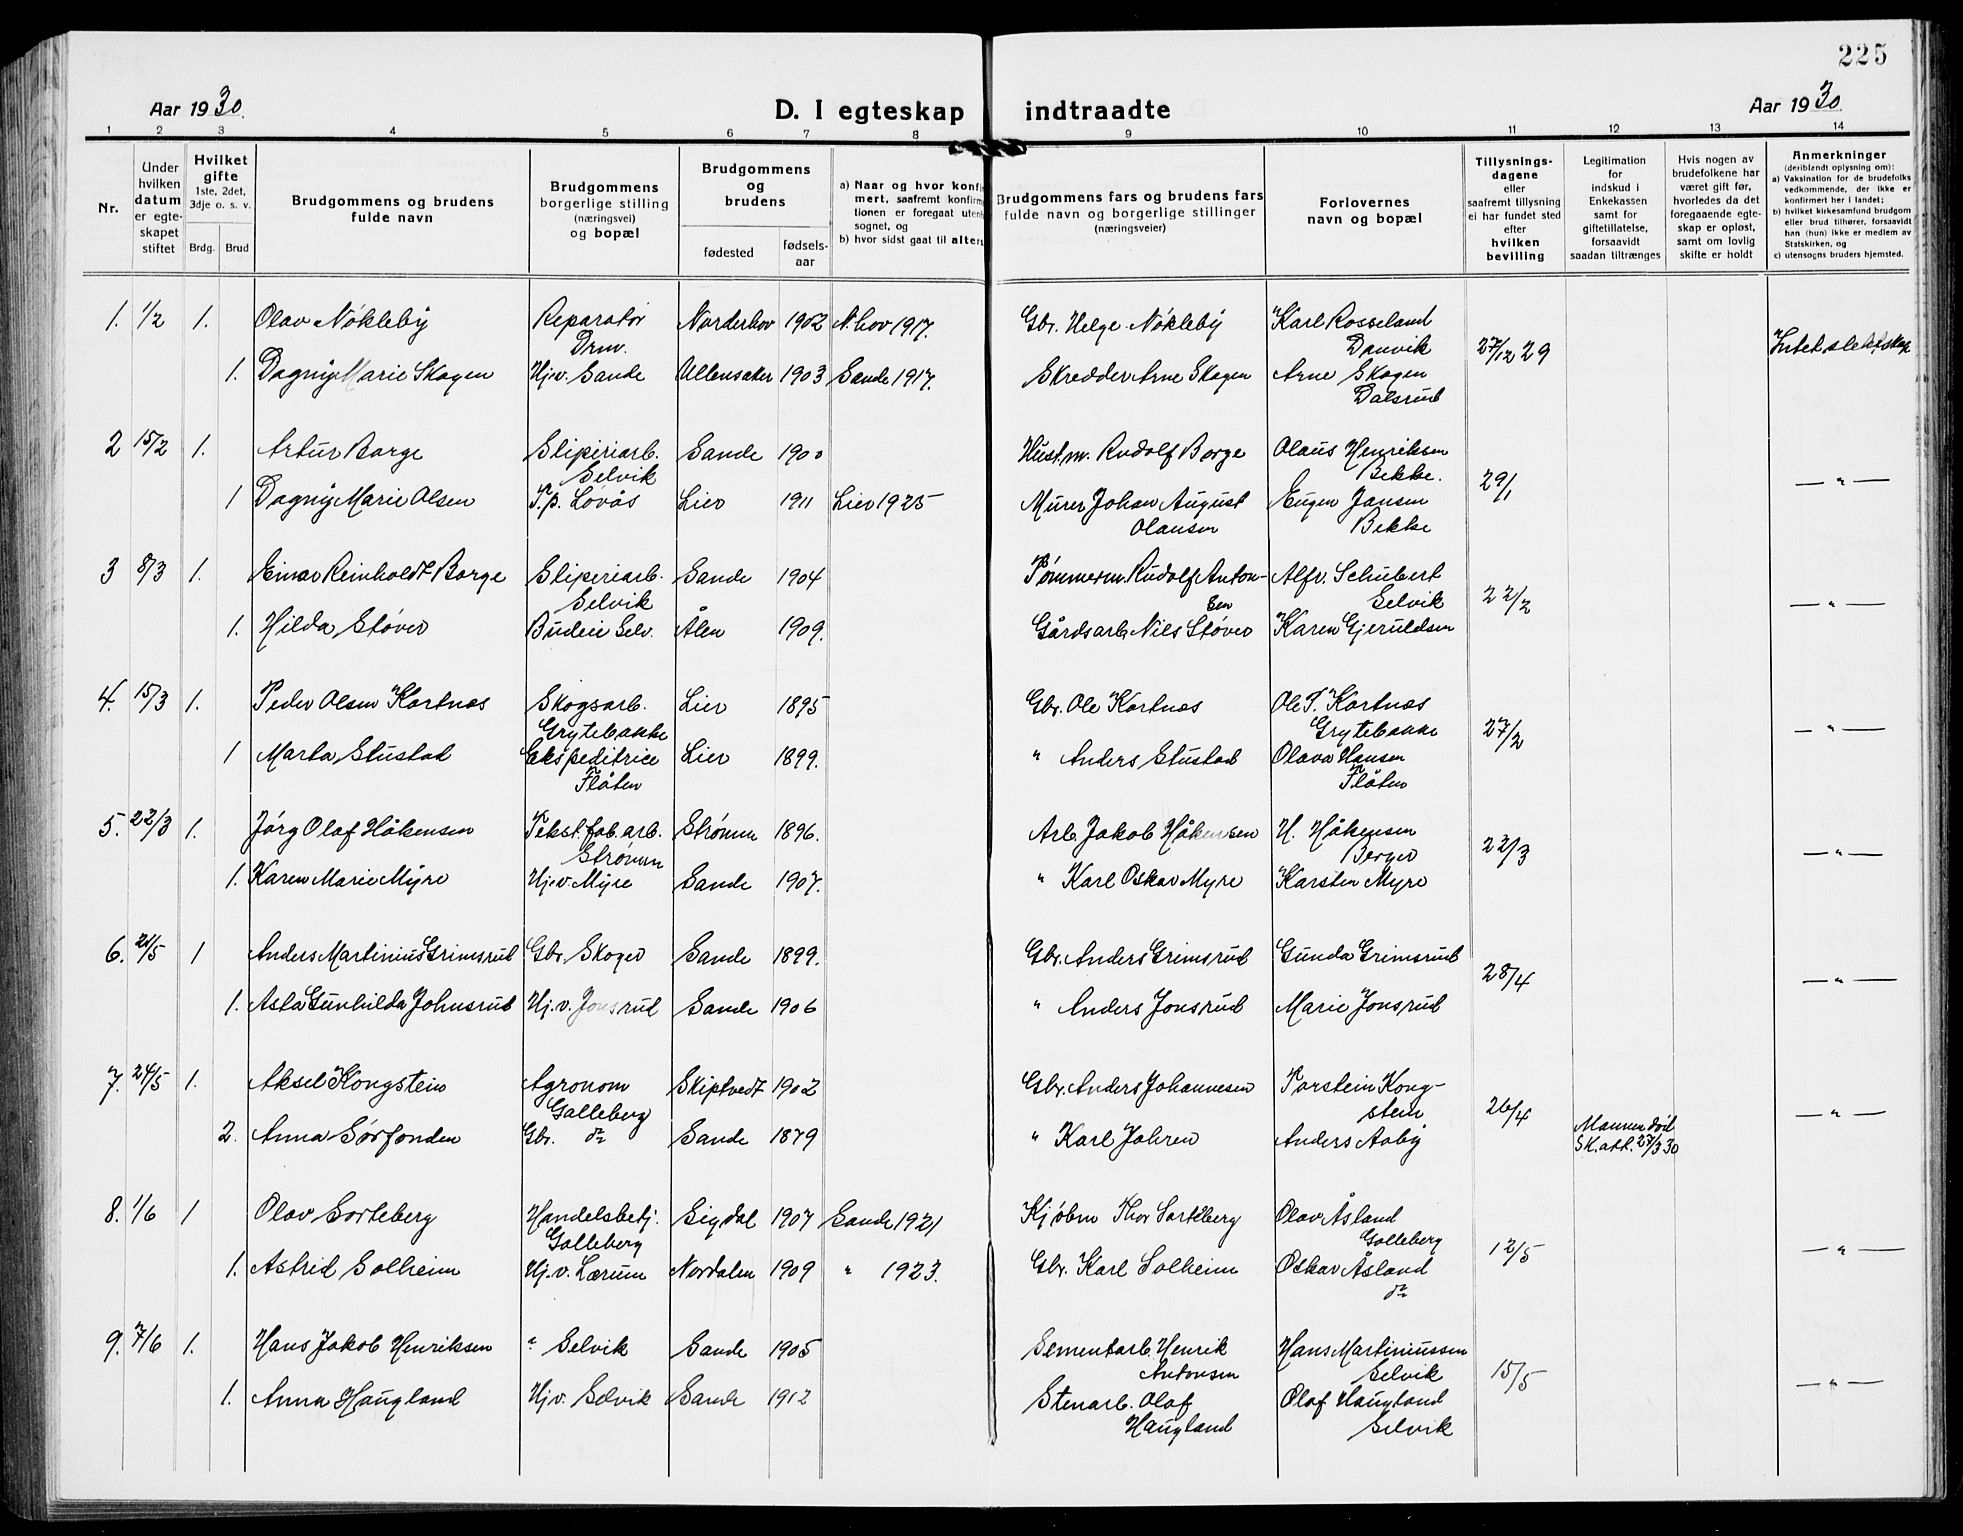 225
Aar 1930.
D. I egteskap indtraadte
Aar 1930.
1 2 3 4 5 6 7 8 9 10 11 12 13 14
Nr.
Under hvilken datum er egteskapet stiftet
Hvilket gifte
1ste, 2det, 3dje o. s. v.
Brdg. Brud
Brudgommens og brudens fulde navn
Brudgommens borgerlige stilling (næringsvei) og bopæl
Brudgommens og brudens
fødested
fødselsaar
a) Naar og hvor konfi
mert, saafremt konfirm
tionen er foregaat uten
sognet, og
b) hvor sidst gaat til alter
Brudgommens fars og brudens fars
fulde navn og borgerlige stillinger
(næringsveier)
Forlovernes
navn og bopæl
Tillysningsdagene
eller
saafremt tillysning
ei har fundet sted
efter
hvilken
bevilling
Legitimation
for
indskud i
Enkekassen
samt for
giftetillatelse,
forsaavidt
saadan tiltrænges
Hvis nogen av
brudefolkene har
været gift før,
hvorledes da det
foregaaende egteskap er opløst,
samt om lovlig
skifte er holdt
Anmerkninger
(deriblandt oplysning om):
a) Vaksination for de brudefolks
vedkommende, der ikke er
konfirmert her i landet;
b) hvilket kirkesamfund brudgom
eller brud tilhører, forsaavidt
han (hun) ikke er medlem av
Statskirken, og
c) utensogns bruders hjemsted.
1. 1/2 1. Olav Nökleby Reparatör Norderhov 1902 N.hov 1917. Gbr. Helge Nökleby Karl Rosseland
Drm. Danvik 27/12 29 Intet slektskap
1. Dagny Marie Skogen Hj.v. Sande Ullensaker 1903 Sande 1917. Skredder Arne Skogen Arne Skogen
Dalsrud
2 15/2 1. Artur Borge Sliperiarb. Sande 1900 Hust.m. Rudolf Borge Olaus Henriksen
Selvik Bekke. 29/1 — " —
1 Dagny Marie Olsen T.p. Lövås Lier 1911 Lier 1925 Murer Johan August Eugen Jansen
Olausen Bekke
3 8/3 1. Einar Reinholdt Borge Sliperiarb. Sande 1904 Tømmerm. Rudolf Anton- Alfr. Schubert
Selvik sen Selvik 22/2 — " —
1. Hilda Støver Budeie Selv. Ålen 1909. Gårdsarb. Nils Støver Karen Gjeruldsen
4. 15/3 1. Peder Olsen Kortnes Skogsarb. Lier 1895 Gbr. Ole Kortnes Ole P. Kortnes
Grytebakke Grytebakke 27/2 — " —
1 Marta Stustad Ekspeditrice Lier 1899. " Anders Stustad Olava Hansen
Flåten Flåten
5. 22/3 1. Jörg Olaf Håkensen Tekst.fab.arb. Strömm 1896. Arb. Jakob Håkensen H. Håkensen
Strömm Berger 22/3 — " —
1. Karen Marie Myre Hj.v. Myre Sande 1907. " Karl Oskar Myre Karsten Myre
6. 21/5 1 Anders Martinius Grimsrud Gbr. Skoger Sande 1899. Gbr. Anders Grimsrud Gunda Grimsrud
28/4 — " —
1. Asta Gunhilda Johnsrud Hj.v. Jonsrud Sande 1906 " Anders Jonsrud Marie Jonsrud
7. 24/5 1. Aksel Kongstein Agronom Skiptvedt 1902 Gbr. Anders Johannesen Torstein Kong-
Galleberg stein 26/4 — " —
2. Anna Sörfonden Gbr. do Sande 1879 " Karl Jahren Anders Aaby Mannen död
Sk.att. 27/3 30
8. 1/6 1 Olav Sorteberg Handelsbetj. Sigdal 1907 Sande 1921 Kjøbm Thor Sorteberg Olav Åsland
Galleberg Galleberg 12/5 — " —
1. Astrid Solheim Hj.v. Lærum Nordalen 1909 " 1923. Gbr. Karl Solheim Oskar Åsland
do
9. 7/6 1. Hans Jakob Henriksen " Selvik Sande 1905 Sementarb. Henrik Hans Martiniussen
Antonsen Selvik 15/5 — " —
1. Anna Haugland Hj.v. Selvik Sande 1912 Stenarb. Olaf Olaf Haugland
Haugland Selvik